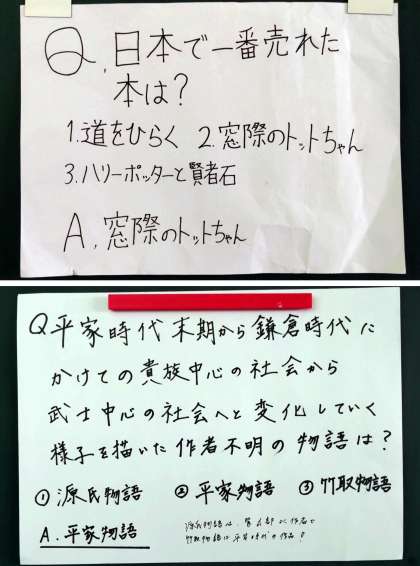 Q.日本で一番売れた
本は?
1.道をひらく 2.窓際のトットちゃん
3.ハリーポッターと賢者石
A.窓際のトットちゃん
Q平家時代末期から鎌倉時代に
かけての貴族中心の社会から
武士中心の社会へと変化していく
様子を描いた作者不明の物語は?
①源氏物語 ②平家物語 ③竹取物語
A.平家物語
源氏物語は、紫式部が作者で
竹取物語は平安時代の作品